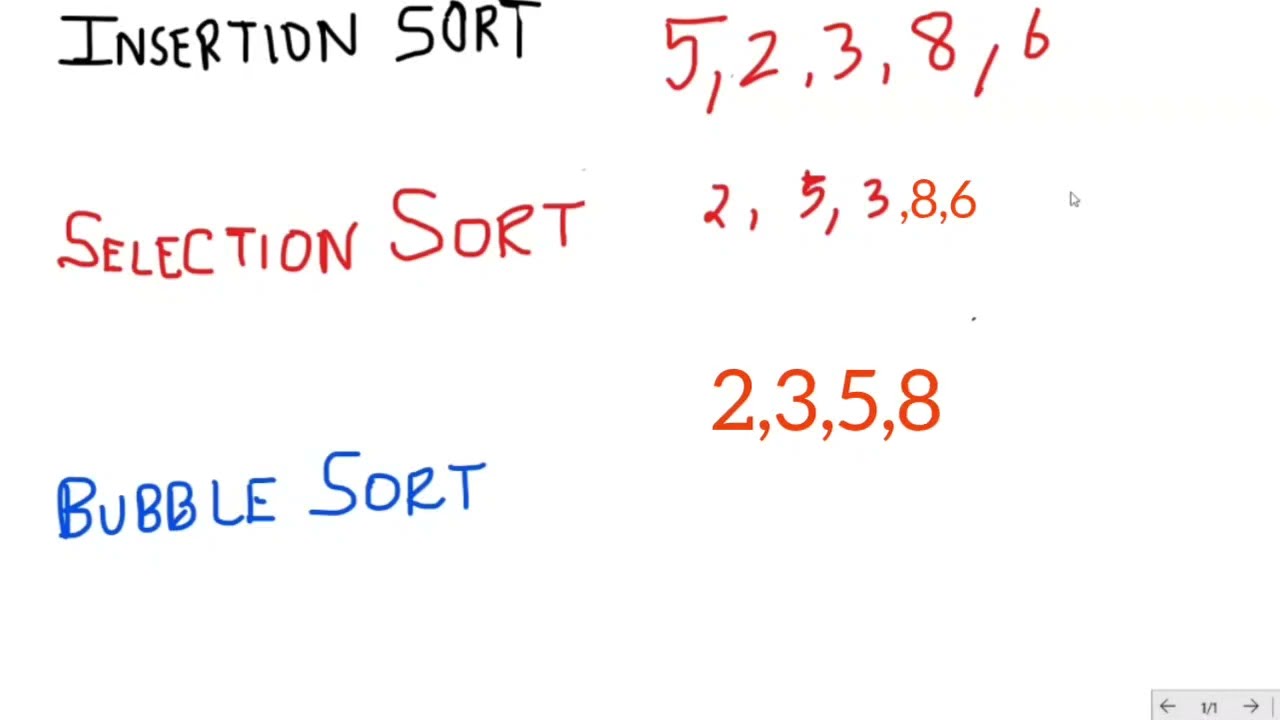 INSERTION SORT 5,2,3,8,6
SELECTION SORT 2,5,3,8,6
2,3,5,8
BUBBLE SORT
1/1